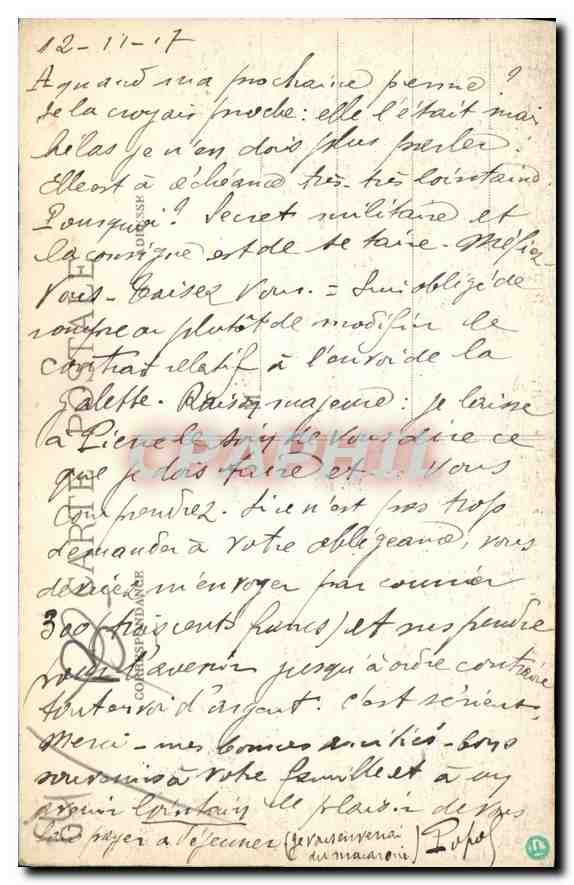 12-11-17
A quand ma prochaine perme ?
Je la croyais proche : elle l'était mais
hélas je n'en dois plus parler.
Elle est à échéance très-très lointaine.
Pourquoi ? Secret militaire et
la consigne est de se taire - Méfiez
Vous - Taisez Vous. = Suis obligé de
rompre ou plutôt de modifier le
contrat relatif à l'envoi de la
galette. Raison majeure : je laisse
à Pierre le soin de vous dire ce
que je dois faire et vous
comprendrez. Si ce n'est pas trop
demander à votre obligeance, vous
devriez m'envoyer par courrier
300 (trois cents francs) et suspendre
pour l'avenir jusqu'à ordre contraire
tout envoi d'argent. c'est sérieux.
Merci - mes bonnes amitiés - bons
souvenirs à votre famille et à un
avenir lointain le plaisir de vous
payer à déjeuner (je vous enverrai
du macaroni) Popol
CARTE POSTALE
CORRESPONDANCE
ADRESSE
CPAPHIL
.com